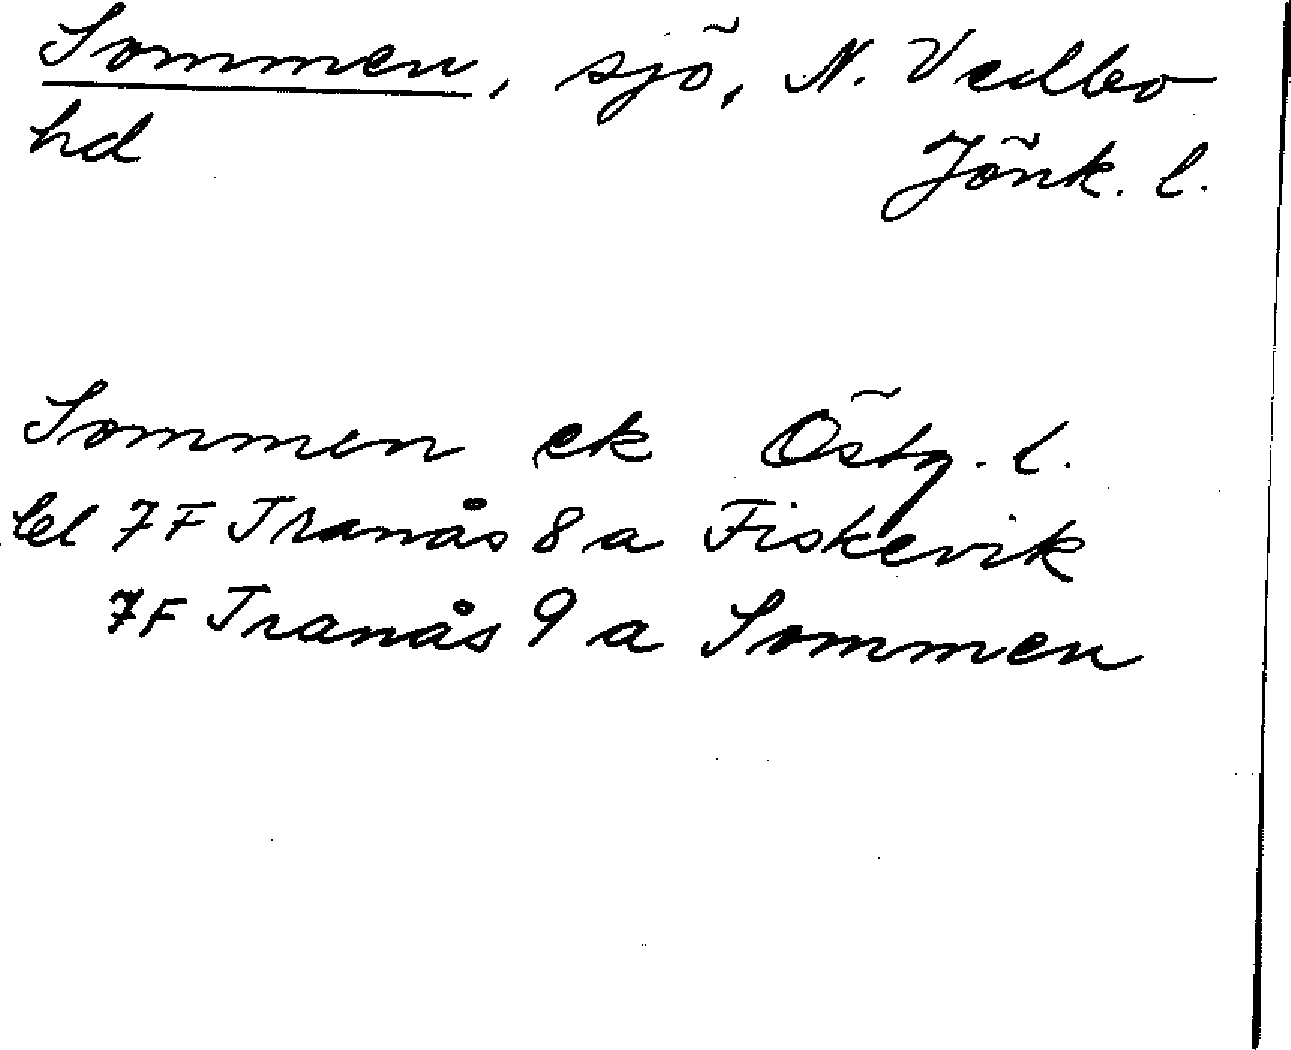 Sommen, sjö, N. Vedbo
hd
Jönk. l.
Sommen ek Östg. l.
bl 7F Tranås 8 a Fiskevik
7F Tranås 9 a Sommen